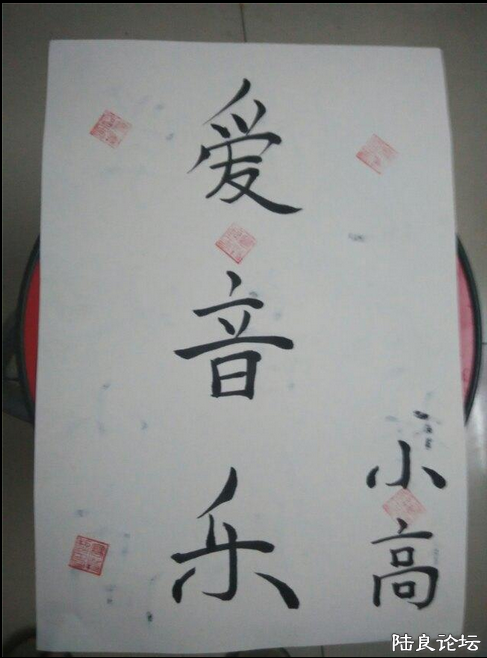 爱音乐
小高
陆良论坛